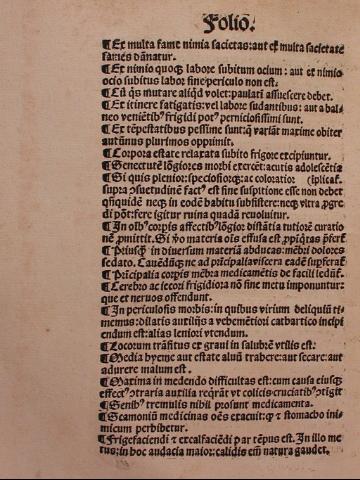 Folio.
¶Ex multa fame nimia sacietas: aut ex multa societate
fames dānatur.
¶Ex nimio quoqꝫ labore subitum ocium: aut ex nimio
ocio subitus labor sine periculo non est.
¶Cū qͥs mutare aliqd volet: paulati assuescere debet.
¶Ex itinere fatigatis: vel labore sudantibus: aut a bal-
neo venietibꝰ frigidi potꝰ perniciosissimi sunt.
¶Ex tēpestatibus pessime sunt: q̄ variāt maxime obiter
autūnus plurimos opprimit.
¶Corpora estate relaxata subito frigore excipiuntur.
¶Senectutē lōgiores morbi exercet: acutis adolescētiā
¶Si quis plenior: speciosiorqꝫ: ac coloratior (īplicāt.
supra ꝯsuetudinē factꝰ est sine suspitione esse non debet
qñquidē neqꝫ in eodē habitu subsistere: neqꝫ vltra ꝓgre
di pōt: fere igitur ruina quadā reuoluitur.
¶In oībꝰ corpis affectibꝰ lōgior distātia tutiorē curatio
nē ꝑmittit. Si v̄o materia oīs effusa est
¶Priusqͣꝫ in diuersum materiā abducas: mēbri dolores
sedato. Cauēdūqꝫ ne ad pͥncipalia viscera eadē
¶Pͥncipalia corpis mēbra medicamētis de facili ledūt.
¶Cerebro ac iecori frigidiora nō sine metu imponuntur:
que et neruos offendunt.
¶In periculosis morbis: in quibus virium deliquiū ti-
memus: dilatis autiliꝰs a vehemētiori catbartico incipi
endum est: alias leniori vtendum.
¶Locorum trāsitus ex graui in salubrē vtilis est.
¶Media hyeme aut estate aluū trahere: aut secare: aut
adurere malum est.
¶Maxima in medendo difficultas est: cum causa eiusqꝫ
effectꝰ ꝯtraria autilia reqrāt vt colicis cruciatibꝰ ꝯtigit
¶Senibꝰ tremulis nihil prosunt medicamenta.
¶Scamoniū medicinas oēs exacuit: et stomacho ini-
micum perhibetur.
¶Frigefaciendi et excalfaciēdi par tēpus est. In illo me
tus: in hoc audacia maior: calidis eīm natura gaudet.